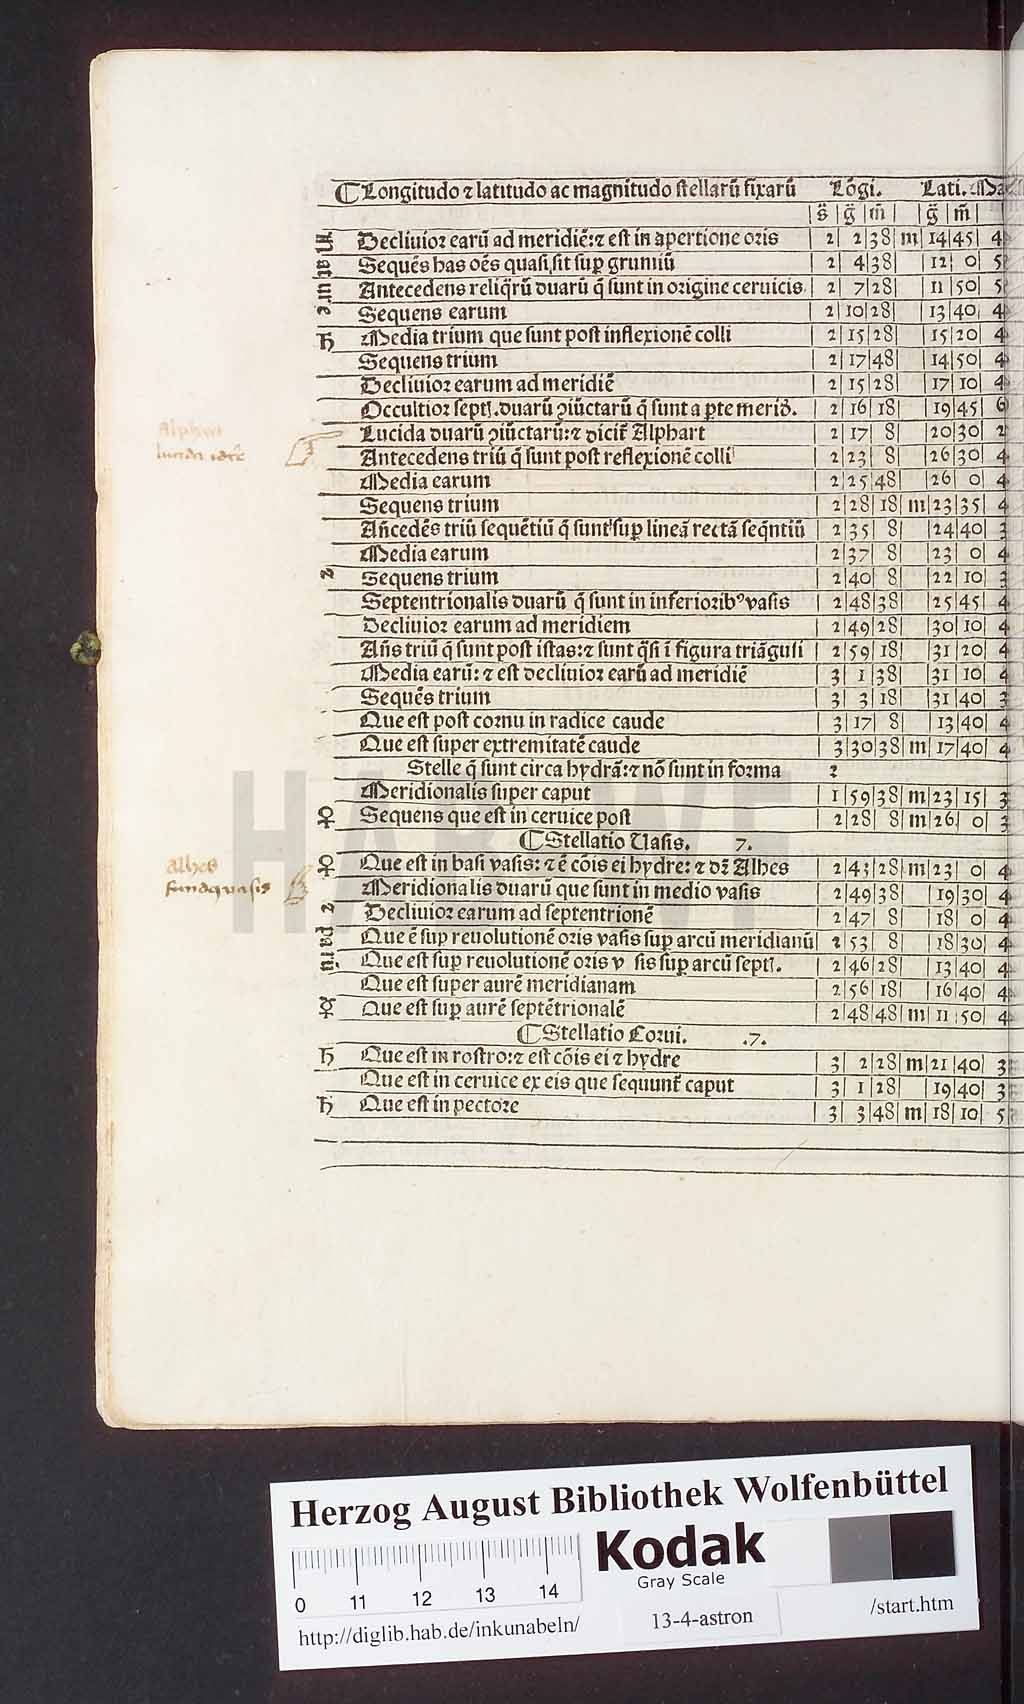 ¶ Longitudo ⁊ latitudo ac magnitudo stellarū fixarū Lōgi. Lati. Ma
s̄ | g̃ | m̄ | | g̃ | m̄ |
Decliuior earū ad meridiē: ⁊ est in apertione oris 2 | 2 | 38 | m | 14 | 45 | 4
Sequēs has oēs quasi sit sup̱ grunnū 2 | 4 | 38 | | 12 | 0 | 5
Antecedens reliq̄rū duarū q̄ sunt in origine ceruicis. 2 | 7 | 28 | | 11 | 50 | 5
Sequens earum 2 | 10 | 28 | | 13 | 40 | 4
♄ Media trium que sunt post inflexionē colli 2 | 15 | 28 | | 15 | 20 | 4
Sequens trium 2 | 17 | 48 | | 14 | 50 | 4
Decliuior earum ad meridiē 2 | 15 | 28 | | 17 | 10 | 4
Occultior septl̄. duarū ꝯiūctarū q̄ sunt a ꝑte merid̄. 2 | 16 | 18 | | 19 | 45 | 6
Alphart
Lucida duarū ꝯiūctarū: ⁊ dicit̄ Alphart 2 | 17 | 8 | | 20 | 30 | 2
Antecedens triū q̄ sunt post reflexionē colli 2 | 23 | 8 | | 26 | 30 | 4
Media earum 2 | 25 | 48 | | 26 | 0 | 4
Sequens trium 2 | 28 | 18 | m | 23 | 35 | 4
Añcedēs triū sequētiū q̄ sunt sup̱ lineā rectā seq̄ntiū 2 | 35 | 8 | | 24 | 40 | 3
Media earum 2 | 37 | 8 | | 23 | 0 | 4
Sequens trium 2 | 40 | 8 | | 22 | 10 | 3
Septentrionalis duarū q̄ sunt in inferioribꝰ vasis 2 | 48 | 38 | | 25 | 45 | 4
Decliuior earum ad meridiem 2 | 49 | 28 | | 30 | 10 | 4
Añs triū q̄ sunt post istas: ⁊ sunt q̄si ī figura triāguli 2 | 59 | 18 | | 31 | 20 | 4
Media earū: ⁊ est decliuior earū ad meridiē 3 | 1 | 38 | | 31 | 10 | 4
Sequēs trium 3 | 3 | 18 | | 31 | 40 | 3
Que est post cornu in radice caude 3 | 17 | 8 | | 13 | 40 | 4
Que est super extremitatē caude 3 | 30 | 38 | m | 17 | 40 | 4
Stelle q̄ sunt circa hydrā: ⁊ nō sunt in forma 2
Meridionalis super caput 1 | 59 | 38 | m | 23 | 15 | 3
♀ Sequens que est in ceruice post 2 | 28 | 8 | m | 26 | 0 | 3
¶ Stellatio Vasis. 7.
alhes
fundq vasis
♀ Que est in basi vasis: ⁊ ē cōis ei hydre: ⁊ dꝫ Alhes 2 | 43 | 28 | m | 23 | 0 | 4
Meridionalis duarū que sunt in medio vasis 2 | 49 | 38 | | 19 | 30 | 4
Decliuior earum ad septentrionē 2 | 47 | 8 | | 18 | 0 | 4
Que ē sup̱ reuolutionē oris vasis sup̱ arcū meridianū 2 | 53 | 8 | | 18 | 30 | 4
Que est sup̱ reuolutionē oris v sis sup̱ arcū septl̄. 2 | 46 | 28 | | 13 | 40 | 4
Que est super aurē meridianam 2 | 56 | 18 | | 16 | 40 | 4
☿ Que est sup̱ aurē septētrionalē 2 | 48 | 48 | m | 11 | 50 | 4
¶ Stellatio Corui. .7.
♄ Que est in rostro: ⁊ est cōis ei ⁊ hydre 3 | 2 | 28 | m | 21 | 40 | 3
Que est in ceruice ex eis que sequunt̄ caput 3 | 1 | 28 | | 19 | 40 | 3
♄ Que est in pectore 3 | 3 | 48 | m | 18 | 10 | 5
HAB WF
Herzog August Bibliothek Wolfenbüttel
Kodak
Gray Scale
0 11 12 13 14
http://diglib.hab.de/inkunabeln/
13-4-astron
/start.htm